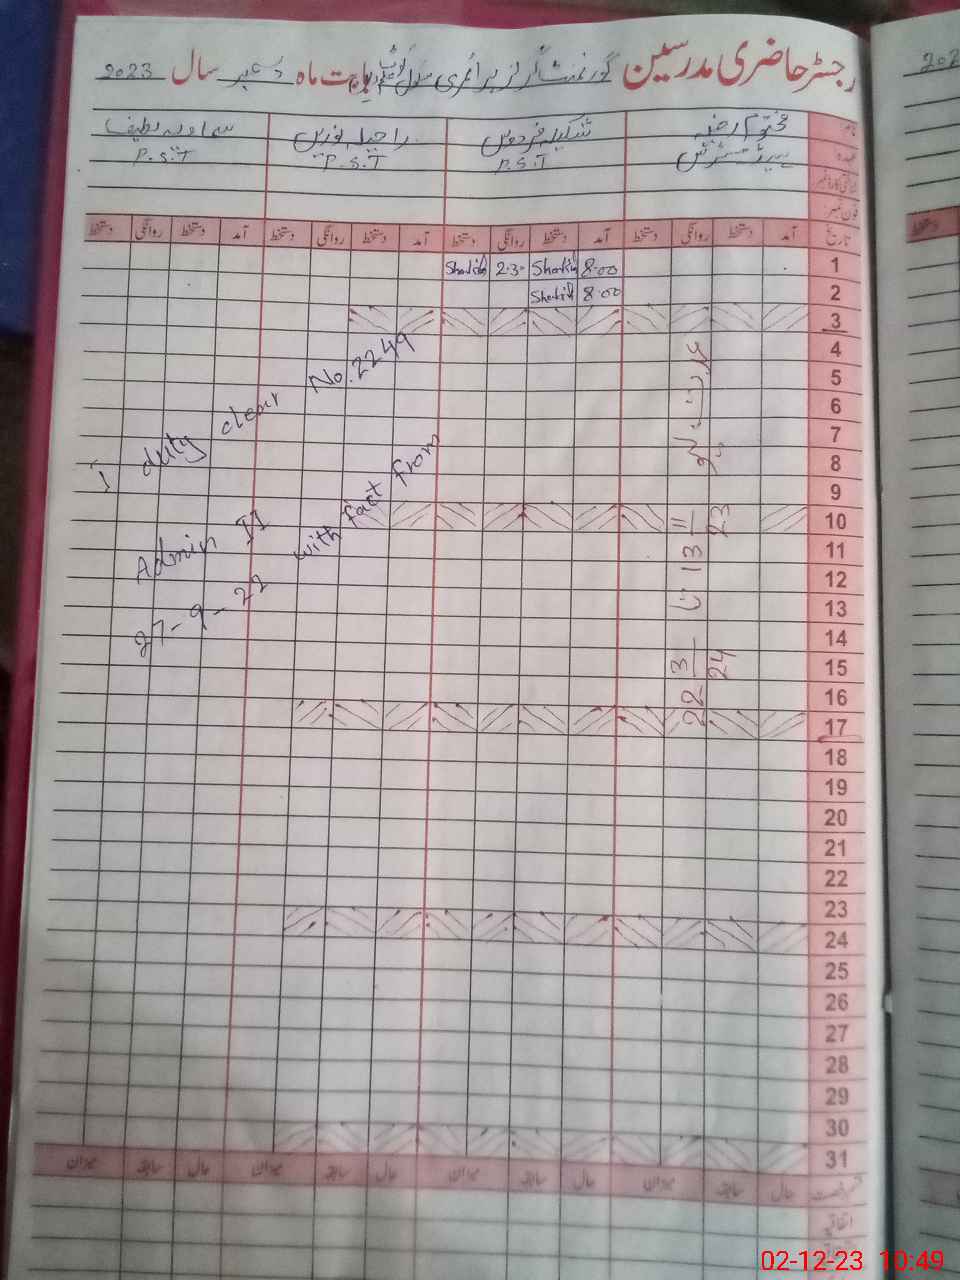 رجسٹر حاضری مدرسین گورنمنٹ گرلز پرائمری سکول بابت ماہ دسمبر سال 2023
نام شکیلہ فردوس راحیلہ نورین
عہدہ ہیڈمسٹرس P.S.T P.S.T P.S.T
شناختی کارڈ نمبر
فون نمبر
تاریخ آمد دستخط روانگی دستخط آمد دستخط روانگی دستخط آمد دستخط روانگی دستخط آمد دستخط روانگی دستخط
1 8.00 2.30
2 8.00
3
4
5
6
7
8
9
10
11
12
13
14
15
16
17
18
19
20
21
22
23
24
25
26
27
28
29
30
31
13 11/23 تا 22 3/24
I duty clear No. 2249
Admin II with fact from
27-9-22
حال سابقہ میزان حال سابقہ میزان حال سابقہ میزان حال سابقہ میزان
اتفاقیہ
202
دستخط
02-12-23 10:49